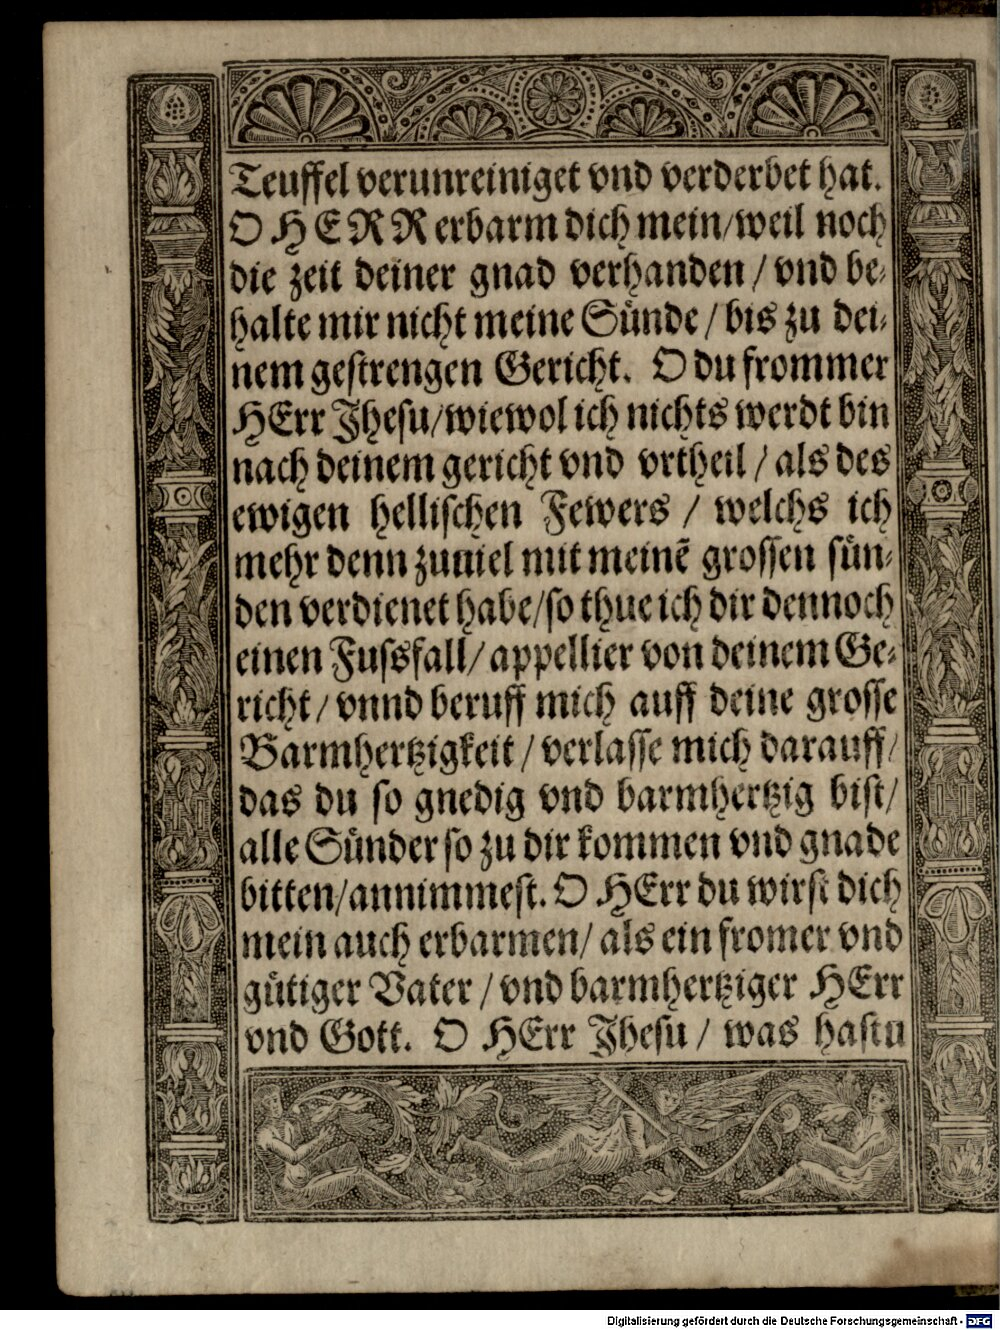 Teuffel verunreiniget vnd verderbet hat.
O HERR erbarm dich mein/weil noch
die zeit deiner gnad verhanden / vnd be-
halte mir nicht meine Sünde / bis zu dei-
nem gestrengen Gericht. O du frommer
HErr Jhesu/wiewol ich nichts werdt bin
nach deinem gericht vnd vrtheil / als des
ewigen hellischen Fewers / welchs ich
mehr denn zuuiel mit meinē grossen sün-
den verdienet habe/so thue ich dir dennoch
einen Fussfall/ appellier von deinem Ge-
richt / vnnd beruff mich auff deine grosse
Barmhertzigkeit / verlasse mich darauff/
das du so gnedig vnd barmhertzig bist/
alle Sünder so zu dir kommen vnd gnade
bitten/annimmest. O HErr du wirst dich
mein auch erbarmen/ als ein fromer vnd
gütiger Vater / vnd barmhertziger HErr
vnd Gott. O HErr Jhesu / was hastu
Digitalisierung gefördert durch die Deutsche Forschungsgemeinschaft - DFG